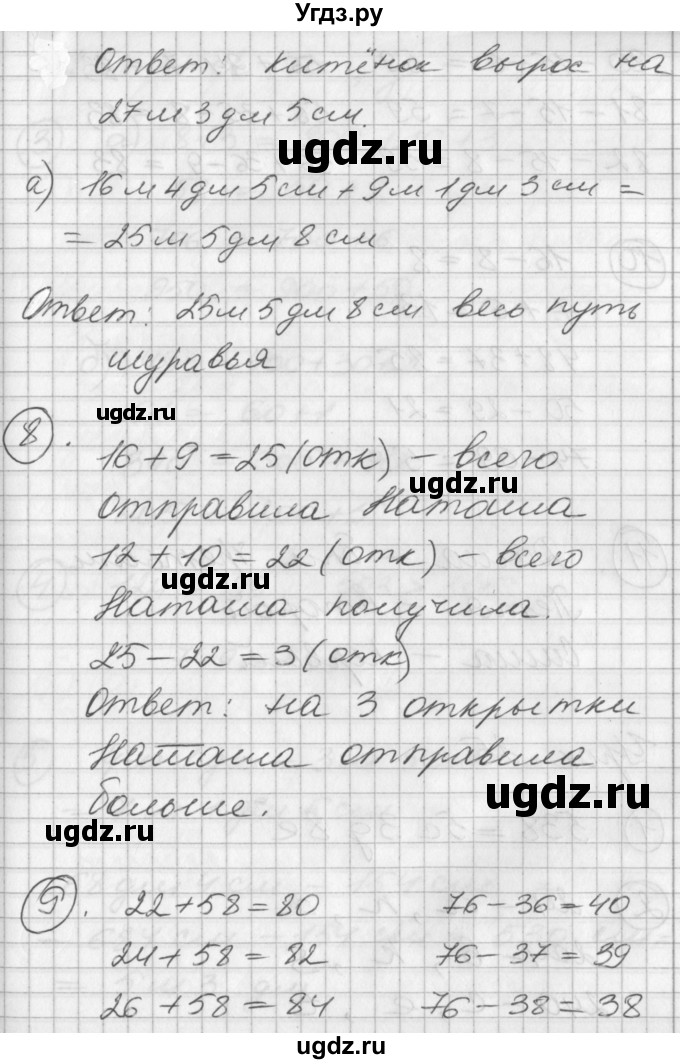 Угдз.ру
Ответ: китёнок вырос на
27м 3дм 5см.
ugdz.ru
а) 16м 4дм 5см + 9м 1дм 3см =
ugdz.ru
= 25м 5дм 8см
Ответ: 25м 5дм 8см весь путь
муравья
ugdz.ru
8. 16 + 9 = 25 (отк) – всего
ugdz.ru
отправила Наташа
12 + 10 = 22 (отк) – всего
ugdz.ru
Наташа получила.
ugdz.ru
25 – 22 = 3 (отк)
Ответ: на 3 открытки
Наташа отправила
ugdz.ru
больше.
ugdz.ru
9. 22 + 58 = 80 76 – 36 = 40
24 + 58 = 82 76 – 37 = 39
26 + 58 = 84. 76 – 38 = 38
Угдз.ру